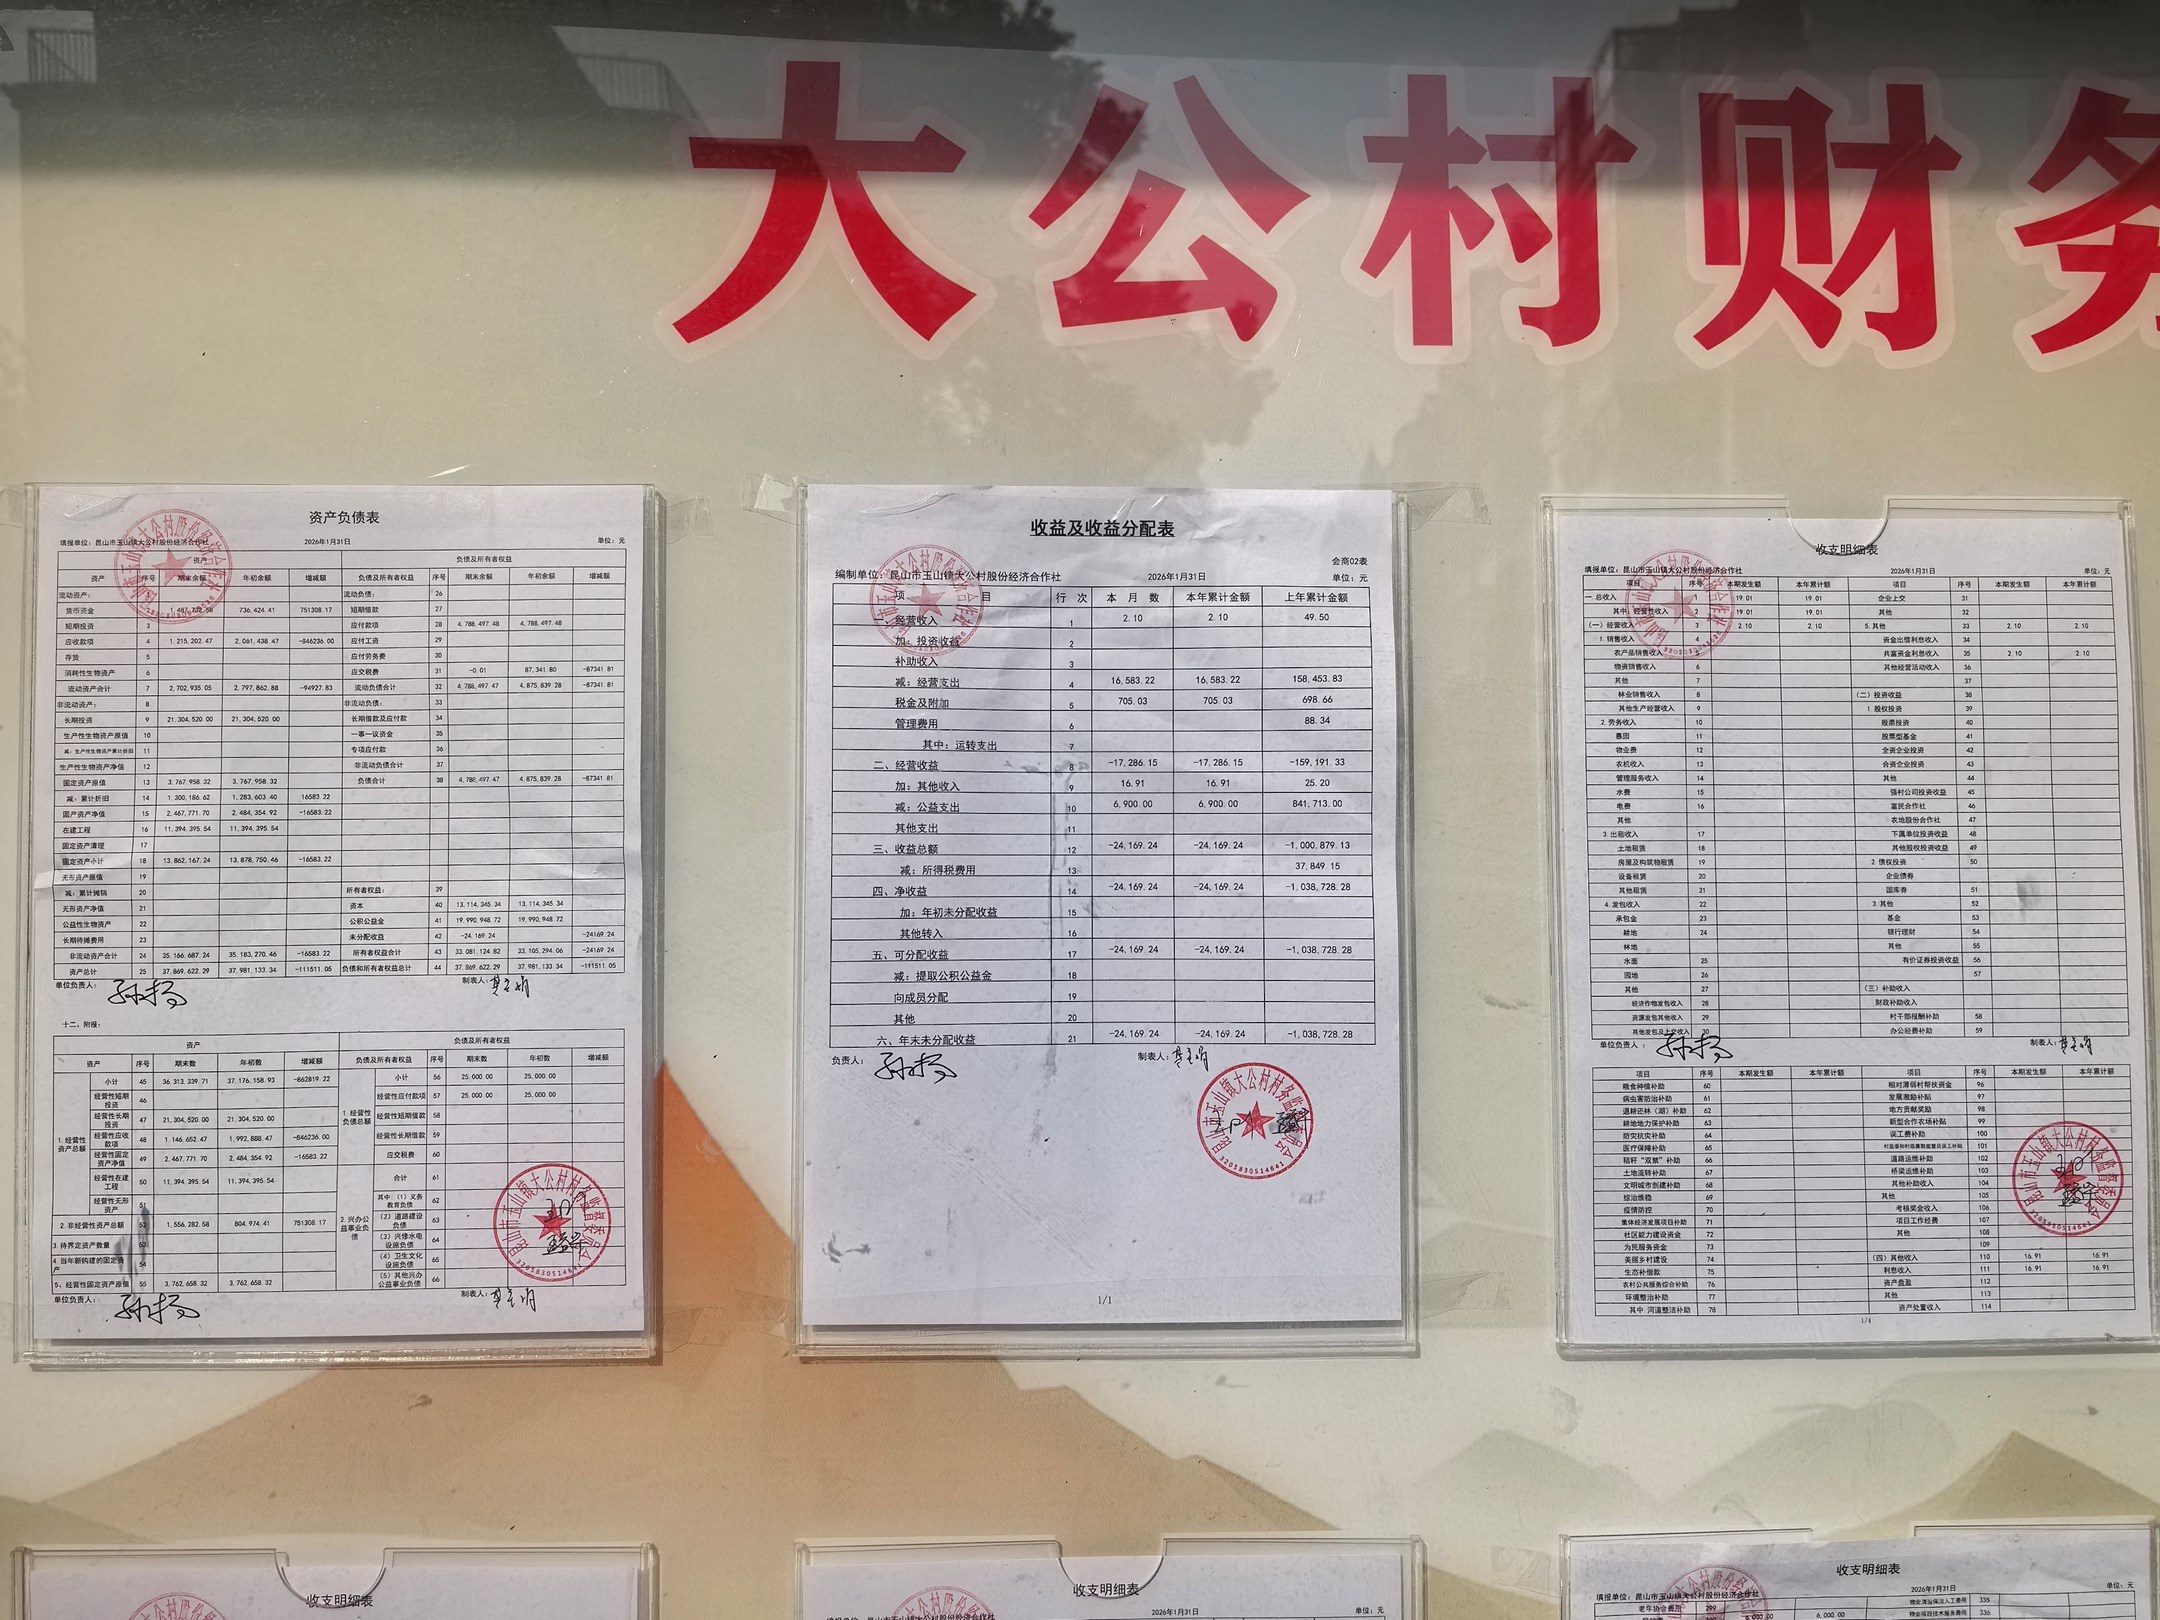 大公村财务
资产负债表
填报单位：昆山市玉山镇大公村股份经济合作社 2026年1月31日 单位：元
资产 负债及所有者权益
资产 序号 期末余额 年初余额 增减额 负债及所有者权益 序号 期末余额 年初余额 增减额
流动资产： 流动负债： 26
货币资金 736,424.41 751308.17 短期借款 27
短期投资 3 应付款项 28 4,788,497.48 4,788,497.48
应收款项 4 1,215,202.47 2,061,438.47 -846236.00 应付工资 29
存货 5 应付劳务费 30
消耗性生物资产 6 应交税费 31 -0.01 87,341.80 -87341.81
流动资产合计 7 2,702,935.05 2,797,862.88 -94927.83 流动负债合计 32 4,788,497.47 4,875,839.28 -87341.81
非流动资产： 8 非流动负债： 33
长期投资 9 21,304,520.00 21,304,520.00 长期借款及应付款 34
生产性生物资产原值 10 一事一议资金 35
减：生产性生物资产累计折旧 11 专项应付款 36
生产性生物资产净值 12 非流动负债合计 37
固定资产原值 13 3,767,958.32 3,767,958.32 负债合计 38 4,788,497.47 4,875,839.28 -87341.81
减：累计折旧 14 1,300,186.62 1,283,603.40 16583.22
固产资产净值 15 2,467,771.70 2,484,354.92 -16583.22
在建工程 16 11,394,395.54 11,394,395.54
固定资产清理 17
固定资产小计 18 13,862,167.24 13,878,750.46 -16583.22
无形资产原值 19
减：累计摊销 20 所有者权益： 39
无形资产净值 21 资本 40 13,114,345.34 13,114,345.34
公益性生物资产 22 公积公益金 41 19,990,948.72 19,990,948.72
长期待摊费用 23 未分配收益 42 -24,169.24 -24169.24
非流动资产合计 24 35,166,687.24 35,183,270.46 -16583.22 所有者权益合计 43 33,081,124.82 33,105,294.06 -24169.24
资产总计 25 37,869,622.29 37,981,133.34 -111511.05 负债和所有者权益总计 44 37,869,622.29 37,981,133.34 -111511.05
单位负责人： 制表人：
十二、附报：
资产 负债及所有者权益
资产 序号 期末数 年初数 增减额 负债及所有者权益 序号 期末数 年初数 增减额
1.经营性资产总额 小计 45 36,313,339.71 37,176,158.93 -862819.22 1.经营性负债总额 小计 56 25,000.00 25,000.00
经营性短期投资 46 经营性应付款项 57 25,000.00 25,000.00
经营性长期投资 47 21,304,520.00 21,304,520.00 经营性短期借款 58
经营性应收款项 48 1,146,652.47 1,992,888.47 -846236.00 经营性长期借款 59
经营性固定资产净值 49 2,467,771.70 2,484,354.92 -16583.22 应交税费 60
经营性在建工程 50 11,394,395.54 11,394,395.54 2.兴办公益事业负债 合计 61
经营性无形资产 51 其中：（1）义务教育负债 62
2.非经营性资产总额 52 1,556,282.58 804,974.41 751308.17 （2）道路建设负债 63
3.待界定资产数量 53 （3）兴修水电设施负债 64
4.当年新购建的固定资产 54 （4）卫生文化设施负债 65
5、经营性固定资产原值 55 3,762,658.32 3,762,658.32 （5）其他兴办公益事业负债 66
单位负责人： 制表人：
昆山市玉山镇大公村村务监督委员会
3205830514641
收益及收益分配表
会商02表
编制单位：昆山市玉山镇大公村股份经济合作社 2026年1月31日 单位：元
项 目 行 次 本 月 数 本年累计金额 上年累计金额
一、经营收入 1 2.10 2.10 49.50
加：投资收益 2
补助收入 3
减：经营支出 4 16,583.22 16,583.22 158,453.83
税金及附加 5 705.03 705.03 698.66
管理费用 6 88.34
其中：运转支出 7
二、经营收益 8 -17,286.15 -17,286.15 -159,191.33
加：其他收入 9 16.91 16.91 25.20
减：公益支出 10 6,900.00 6,900.00 841,713.00
其他支出 11
三、收益总额 12 -24,169.24 -24,169.24 -1,000,879.13
减：所得税费用 13 37,849.15
四、净收益 14 -24,169.24 -24,169.24 -1,038,728.28
加：年初未分配收益 15
其他转入 16
五、可分配收益 17 -24,169.24 -24,169.24 -1,038,728.28
减：提取公积公益金 18
向成员分配 19
其他 20
六、年末未分配收益 21 -24,169.24 -24,169.24 -1,038,728.28
负责人： 制表人：
昆山市玉山镇大公村村务监督委员会
3205830514641
1/1
收支明细表
填报单位：昆山市玉山镇大公村股份经济合作社 2026年1月31日 单位：元
项目 序号 本期发生额 本年累计额 项目 序号 本期发生额 本年累计额
一.总收入 1 19.01 19.01 企业上交 31
其中：经营性收入 2 19.01 19.01 其他 32
（一）经营收入 3 2.10 2.10 5.其他 33 2.10 2.10
1.销售收入 4 资金出借利息收入 34
农产品销售收入 5 共富资金利息收入 35 2.10 2.10
物资销售收入 6 其他经营活动收入 36
其他 7 37
林业销售收入 8 （二）投资收益 38
其他生产经营收入 9 1.股权投资 39
2.劳务收入 10 股票投资 40
惠因 11 股票型基金 41
物业费 12 全资企业投资 42
农机收入 13 合资企业投资 43
管理服务收入 14 其他 44
水费 15 强村公司投资收益 45
电费 16 富民合作社 46
其他 农地股份合作社 47
3.出租收入 17 下属单位投资收益 48
土地租赁 18 其他股权投资收益 49
房屋及构筑物租赁 19 2.债权投资 50
设备租赁 20 企业债券
其他租赁 21 国库券 51
4.发包收入 22 3.其他 52
承包金 23 基金 53
耕地 24 银行理财 54
林地 其他 55
水面 25 有价证券投资收益 56
园地 26 57
其他 27 （三）补助收入
经济作物发包收入 28 财政补助收入
资源发包其他收入 29 村干部报酬补助 58
其他发包及上交收入 30 办公经费补助 59
单位负责人： 制表人：
项目 序号 本期发生额 本年累计额 项目 序号 本期发生额 本年累计额
粮食种植补助 60 相对薄弱村帮扶资金 96
病虫害防治补助 61 发展激励补贴 97
退耕还林（湖）补助 62 地方贡献奖励 98
耕地地力保护补助 63 新型合作农场补贴 99
防灾抗灾补助 64 误工费补助 100
医疗保障补助 65 101
秸秆“双禁”补助 66 道路运维补助 102
土地流转补助 67 桥梁运维补助 103
文明城市创建补助 68 其他补助收入 104
综治维稳 69 其他 105
疫情防控 70 考核奖金收入 106
集体经济发展项目补助 71 项目工作经费 107
社区能力建设资金 72 其他 108
为民服务资金 73 109
美丽乡村建设 74 （四）其他收入 110 16.91 16.91
生态补偿款 75 利息收入 111 16.91 16.91
农村公共服务综合补助 76 资产盘盈 112
环境整治补助 77 其他 113
其中:河道整洁补助 78 资产处置收入 114
昆山市玉山镇大公村村务监督委员会
3205830514641
1/4
收支明细表
收支明细表
填报单位：昆山市玉山镇大公村股份经济合作社 2026年1月31日 单位：元
收支明细表
填报单位：昆山市玉山镇大公村股份经济合作社 2026年1月31日 单位：元
老年协会费用 299 物业清运保洁人工费用 335
6,000.00 6,000.00 物业项目技术服务费用 336